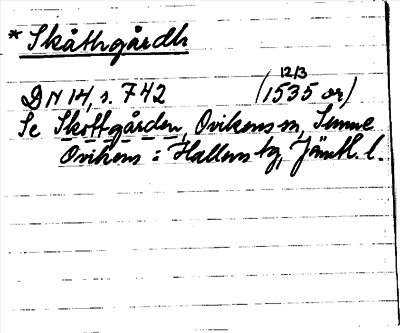 * Skåthgårdh
DN 14, s. 742 (12/3 1535 or)
Se Skottgården, Ovikens sn,
Ovikens : Hallens tg, Jämtl. l.